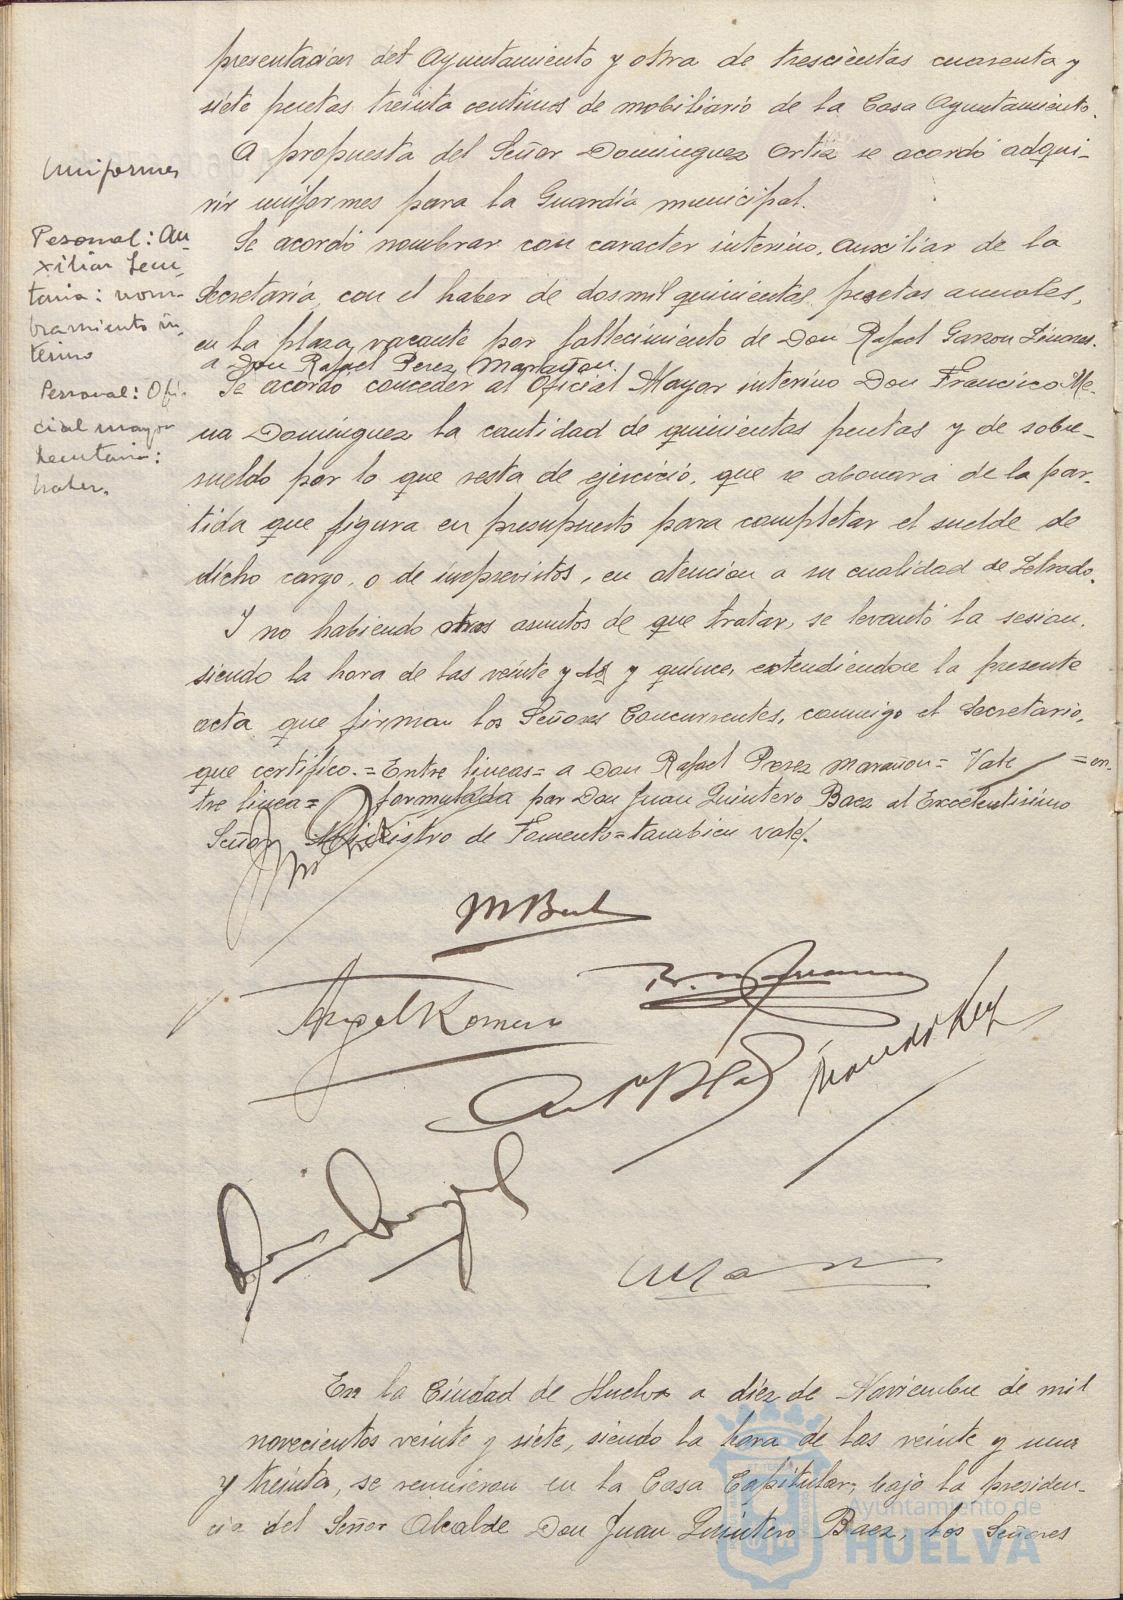 presentación del Ayuntamiento y otra de trescientas cuarenta y
siete pesetas treinta centimos de mobiliario de la Casa Ayuntamiento.
Uniformes
A propuesta del Señor Dominguez Ortiz se acordó adqui-
rir uniformes para la Guardia municipal.
Pesonal: Au
xiliar Secre
taria: nom-
bramiento in-
terino
Se acordó nombrar con caracter interino, auxiliar de la
Secretaría, con el haber de dos mil quinientas pesetas anuales,
en la plaza vacante por fallecimiento de Don Rafael Garzon Linares.
a Don Rafael Perez Marañon.
Personal: Ofi-
cial mayor
Secretaria:
haber.
Se acordó conceder al Oficial Mayor interino Don Francisco Me-
na Dominguez la cantidad de quinientas pesetas y de sobre-
sueldo por lo que resta de ejercicio, que se abonará de la par-
tida que figura en presupuesto para completar el sueldo de
dicho cargo, o de imprevistos, en atencion a su cualidad de Letrado.
Y no habiendo otros asuntos de que tratar, se levantó la sesion,
siendo la hora de las veinte y dos y quince, extendiendose la presente
acta que firman los Señores Concurrentes, conmigo el Secretario,
que certifico.=Entre lineas= a Don Rafael Perez Marañon= Vale =en-
tre linea= formulada por Don Juan Quintero Baez al Excelentisimo
Señor Ministro de Fomento=tambien vale.
Angel Romero
En la Ciudad de Huelva a diez de Noviembre de mil
novecientos veinte y siete, siendo la hora de las veinte y una
y treinta, se reunieron en la Casa Capitular, bajo la presiden-
cia del Señor Alcalde Don Juan Quintero Baez, los Señores
Ayuntamiento de
HUELVA